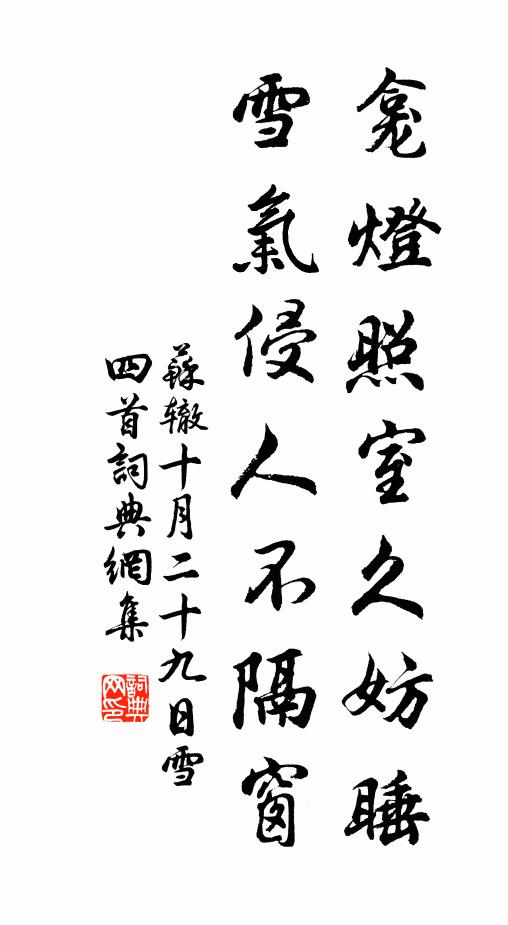 龕燈照室久妨睡
雪氣侵人不隔窗
蘇轍十月二十九日雪
四首詞典網集
詞典网印